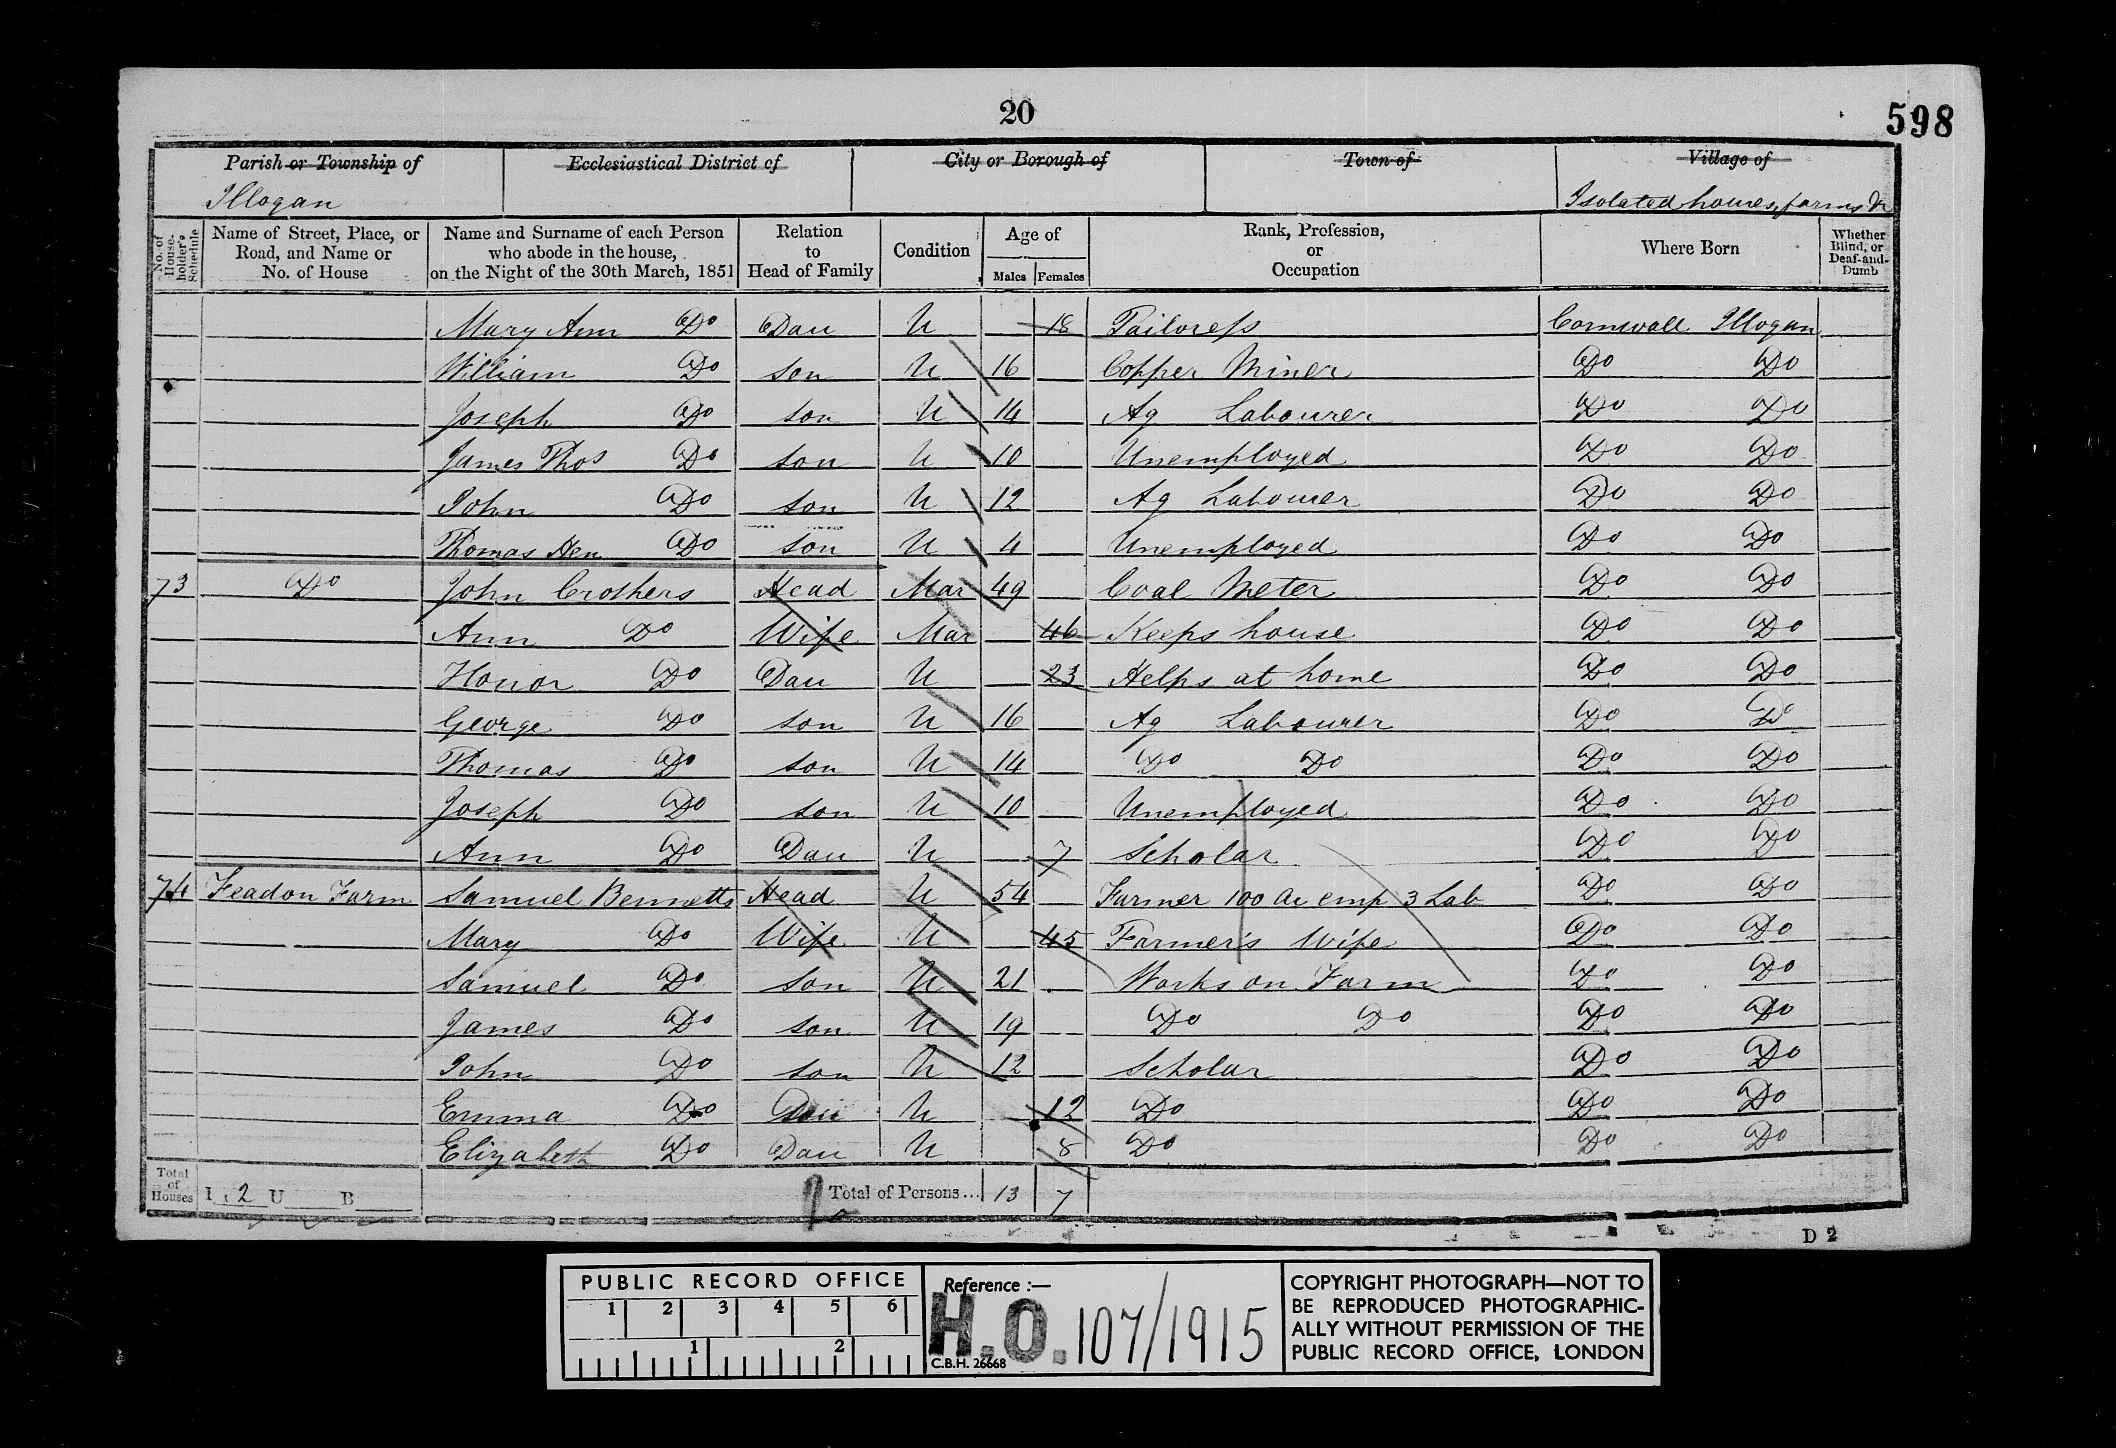 20
598
Parish or Township of
Illogan
Ecclesiastical District of
City or Borough of
Town of
Village of
Isolated houses, farms &c
No. of House-holder's Schedule
Name of Street, Place, or Road, and Name or No. of House
Name and Surname of each Person who abode in the house, on the Night of the 30th March, 1851
Relation to Head of Family
Condition
Age of
Males Females
Rank, Profession, or Occupation
Where Born
Whether Blind, or Deaf-and-Dumb
Mary Ann Do Dau U 18 Tailoress Cornwall Illogan
William Do son U 16 Copper Miner Do Do
Joseph Do son U 14 Ag Labourer Do Do
James Thos Do son U 10 Unemployed Do Do
John Do son U 12 Ag Labourer Do Do
Thomas Hen Do son U 4 Unemployed Do Do
73 Do John Crothers Head Mar 49 Coal Meter Do Do
Ann Do Wife Mar 46 Keeps house Do Do
Honor Do Dau U 23 Helps at home Do Do
George Do son U 16 Ag Labourer Do Do
Thomas Do son U 14 Do Do Do Do
Joseph Do son U 10 Unemployed Do Do
Ann Do Dau U 7 Scholar Do Do
74 Feadon Farm Samuel Bennetts Head U 54 Farmer 100 Ac emp 3 Lab Do Do
Mary Do Wife U 45 Farmer's Wife Do Do
Samuel Do son U 21 Works on Farm Do Do
James Do son U 19 Do Do Do Do
John Do son U 12 Scholar Do Do
Emma Do Dau U 12 Do Do Do
Elizabeth Do Dau U 8 Do Do Do
Total of Houses I 2 U B Total of Persons... 13 7
D 2
PUBLIC RECORD OFFICE
1 2 3 4 5 6
1 2
Reference :-
H.O. 107/1915
C.B.H. 26668
COPYRIGHT PHOTOGRAPH—NOT TO
BE REPRODUCED PHOTOGRAPHIC-
ALLY WITHOUT PERMISSION OF THE
PUBLIC RECORD OFFICE, LONDON